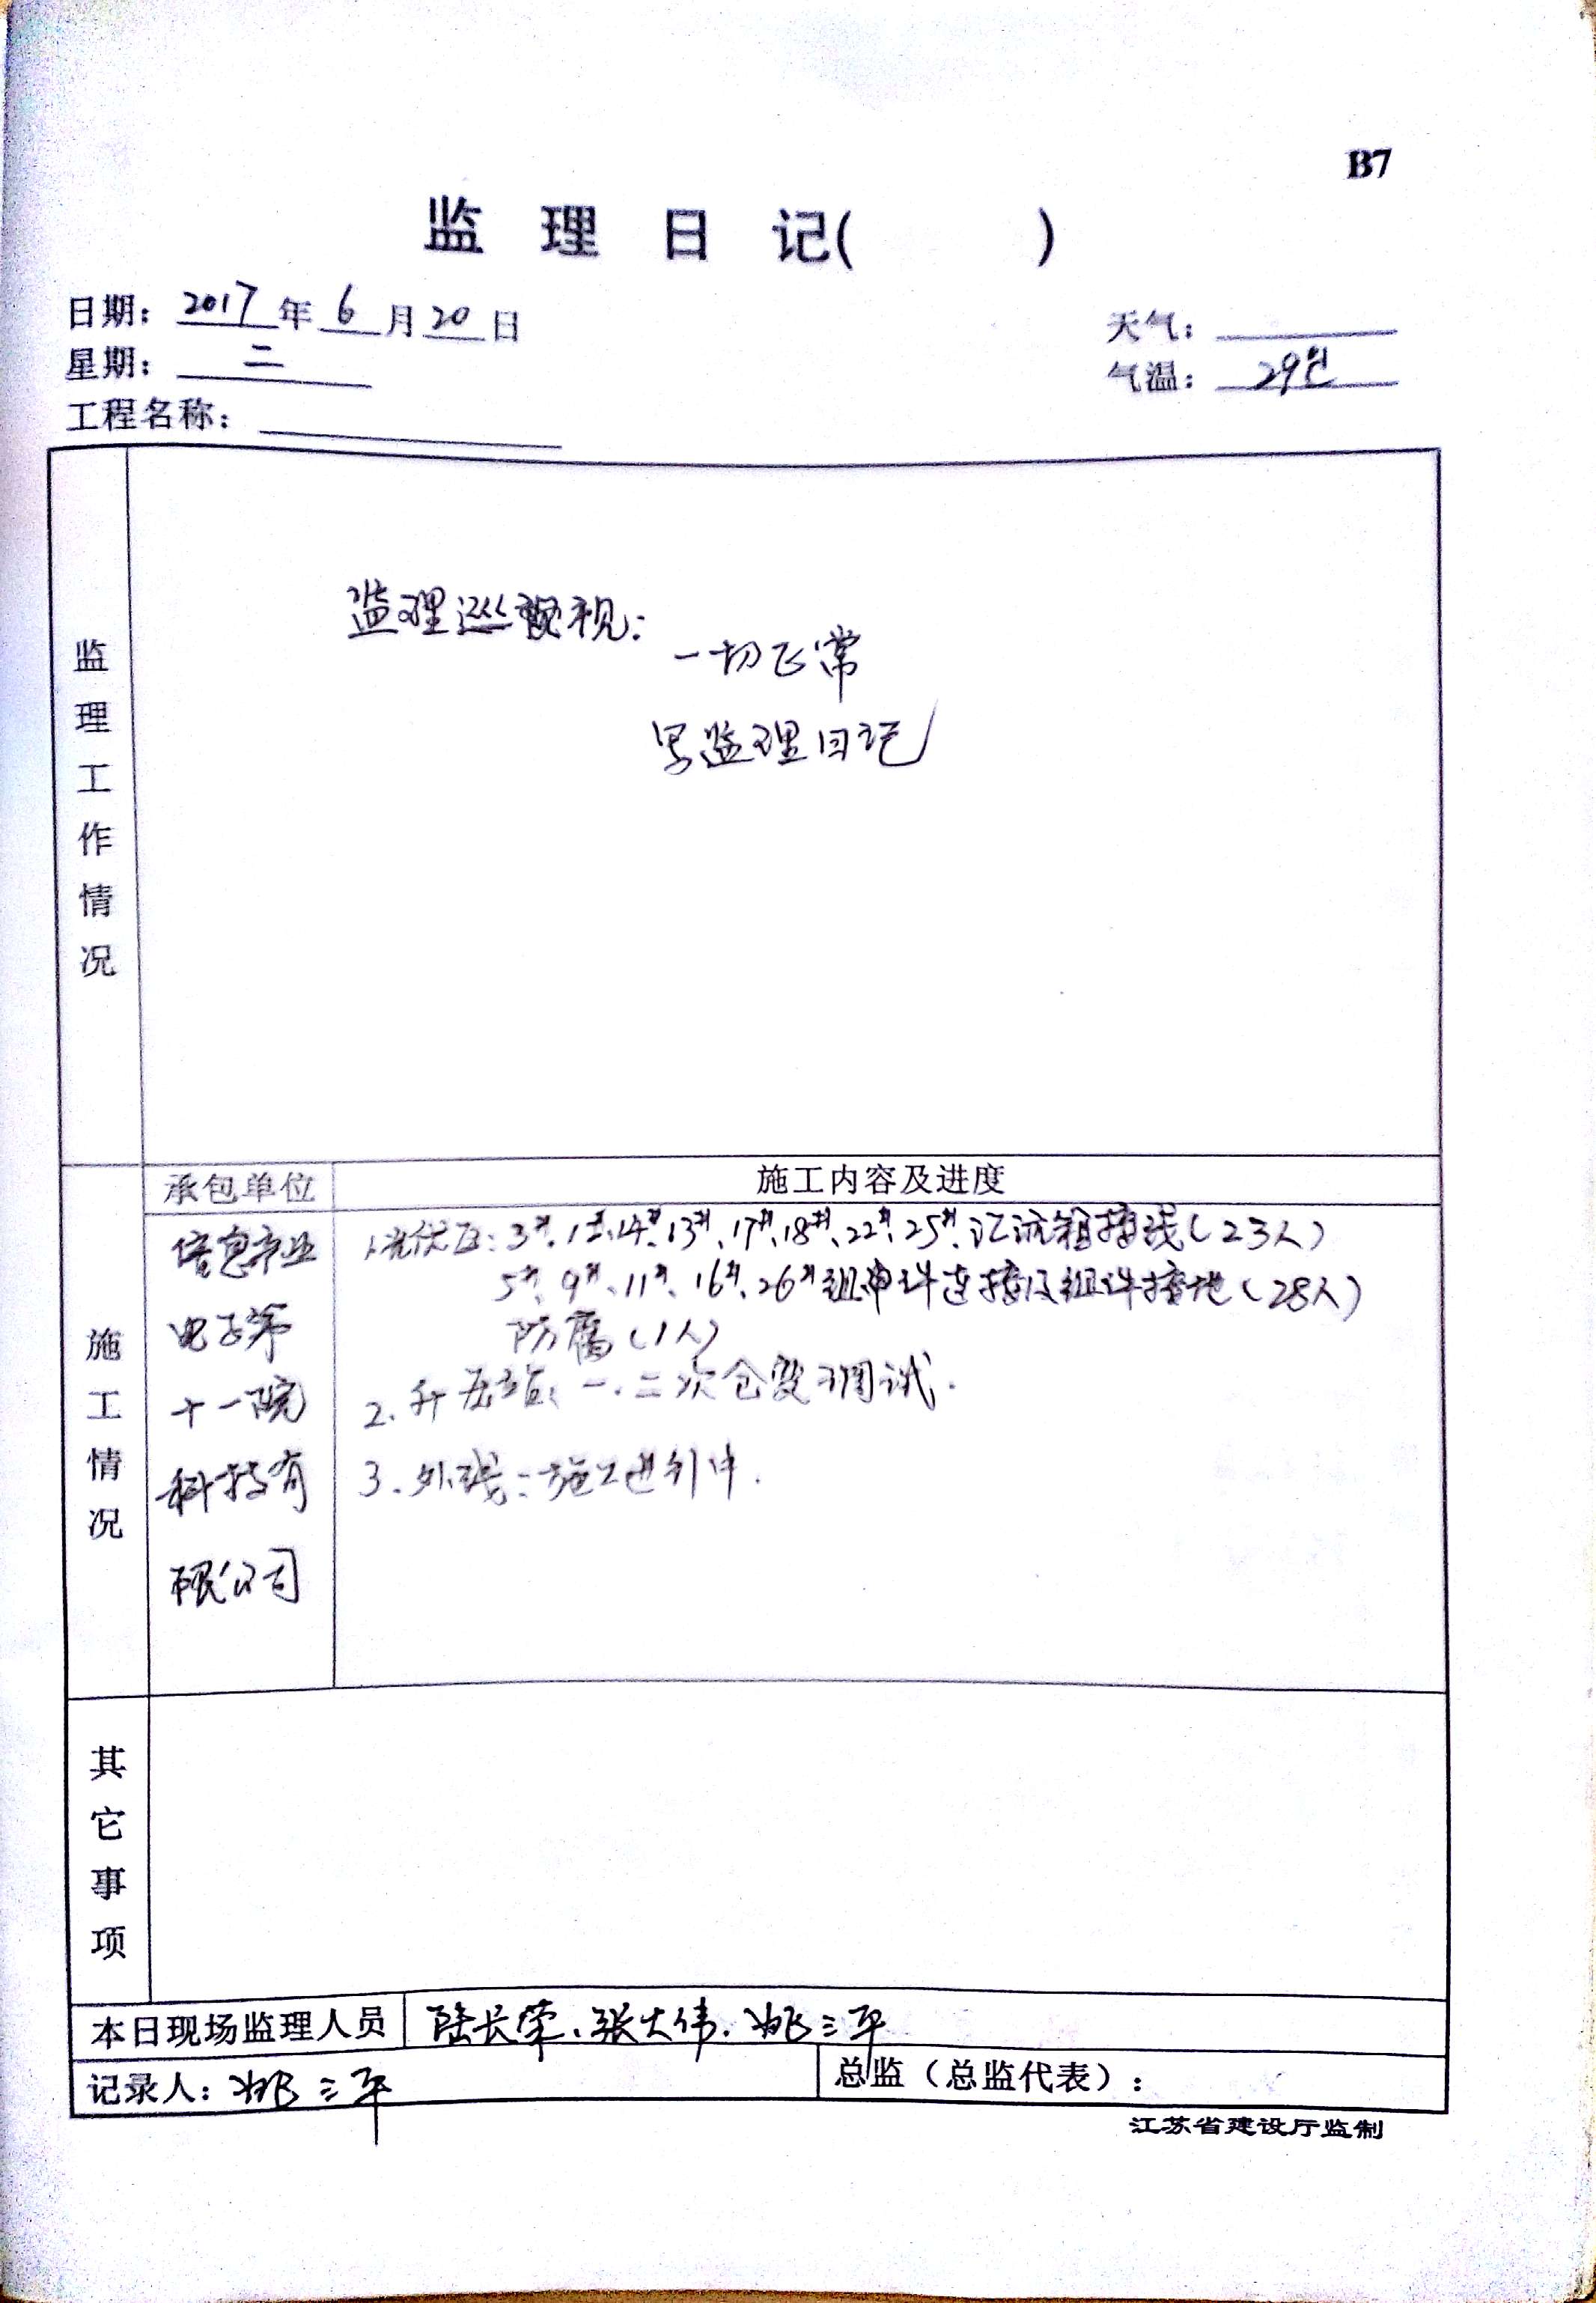 B7
监 理 日 记( )
日期: 2017 年 6 月 20 日
天气:
星期: 二
气温: 29℃
工程名称:
监理工作情况
监理巡视:
一切正常
写监理日记
施工情况
承包单位
施工内容及进度
信息产业
电子第
十一院
科技有
限公司
1.光伏区: 3#、1#、14#、13#、17#、18#、22#、25#、汇流箱接线(23人)
5#、9#、11#、16#、26#组串件连接及组件接地(28人)
防腐(1人)
2. 升压站: 一.二次仓变调试.
3. 外线: 施工进行中.
其它事项
本日现场监理人员 陆长荣、张大伟、姚三平
记录人: 姚三平
总监(总监代表):
江苏省建设厅监制